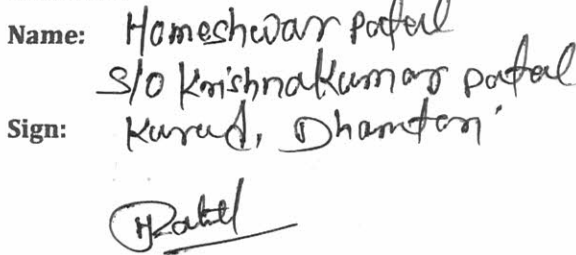 Name: Homeshwar patel
S/O Krishnakumar patel
Sign: Kurud, Dhamtari
HPatel